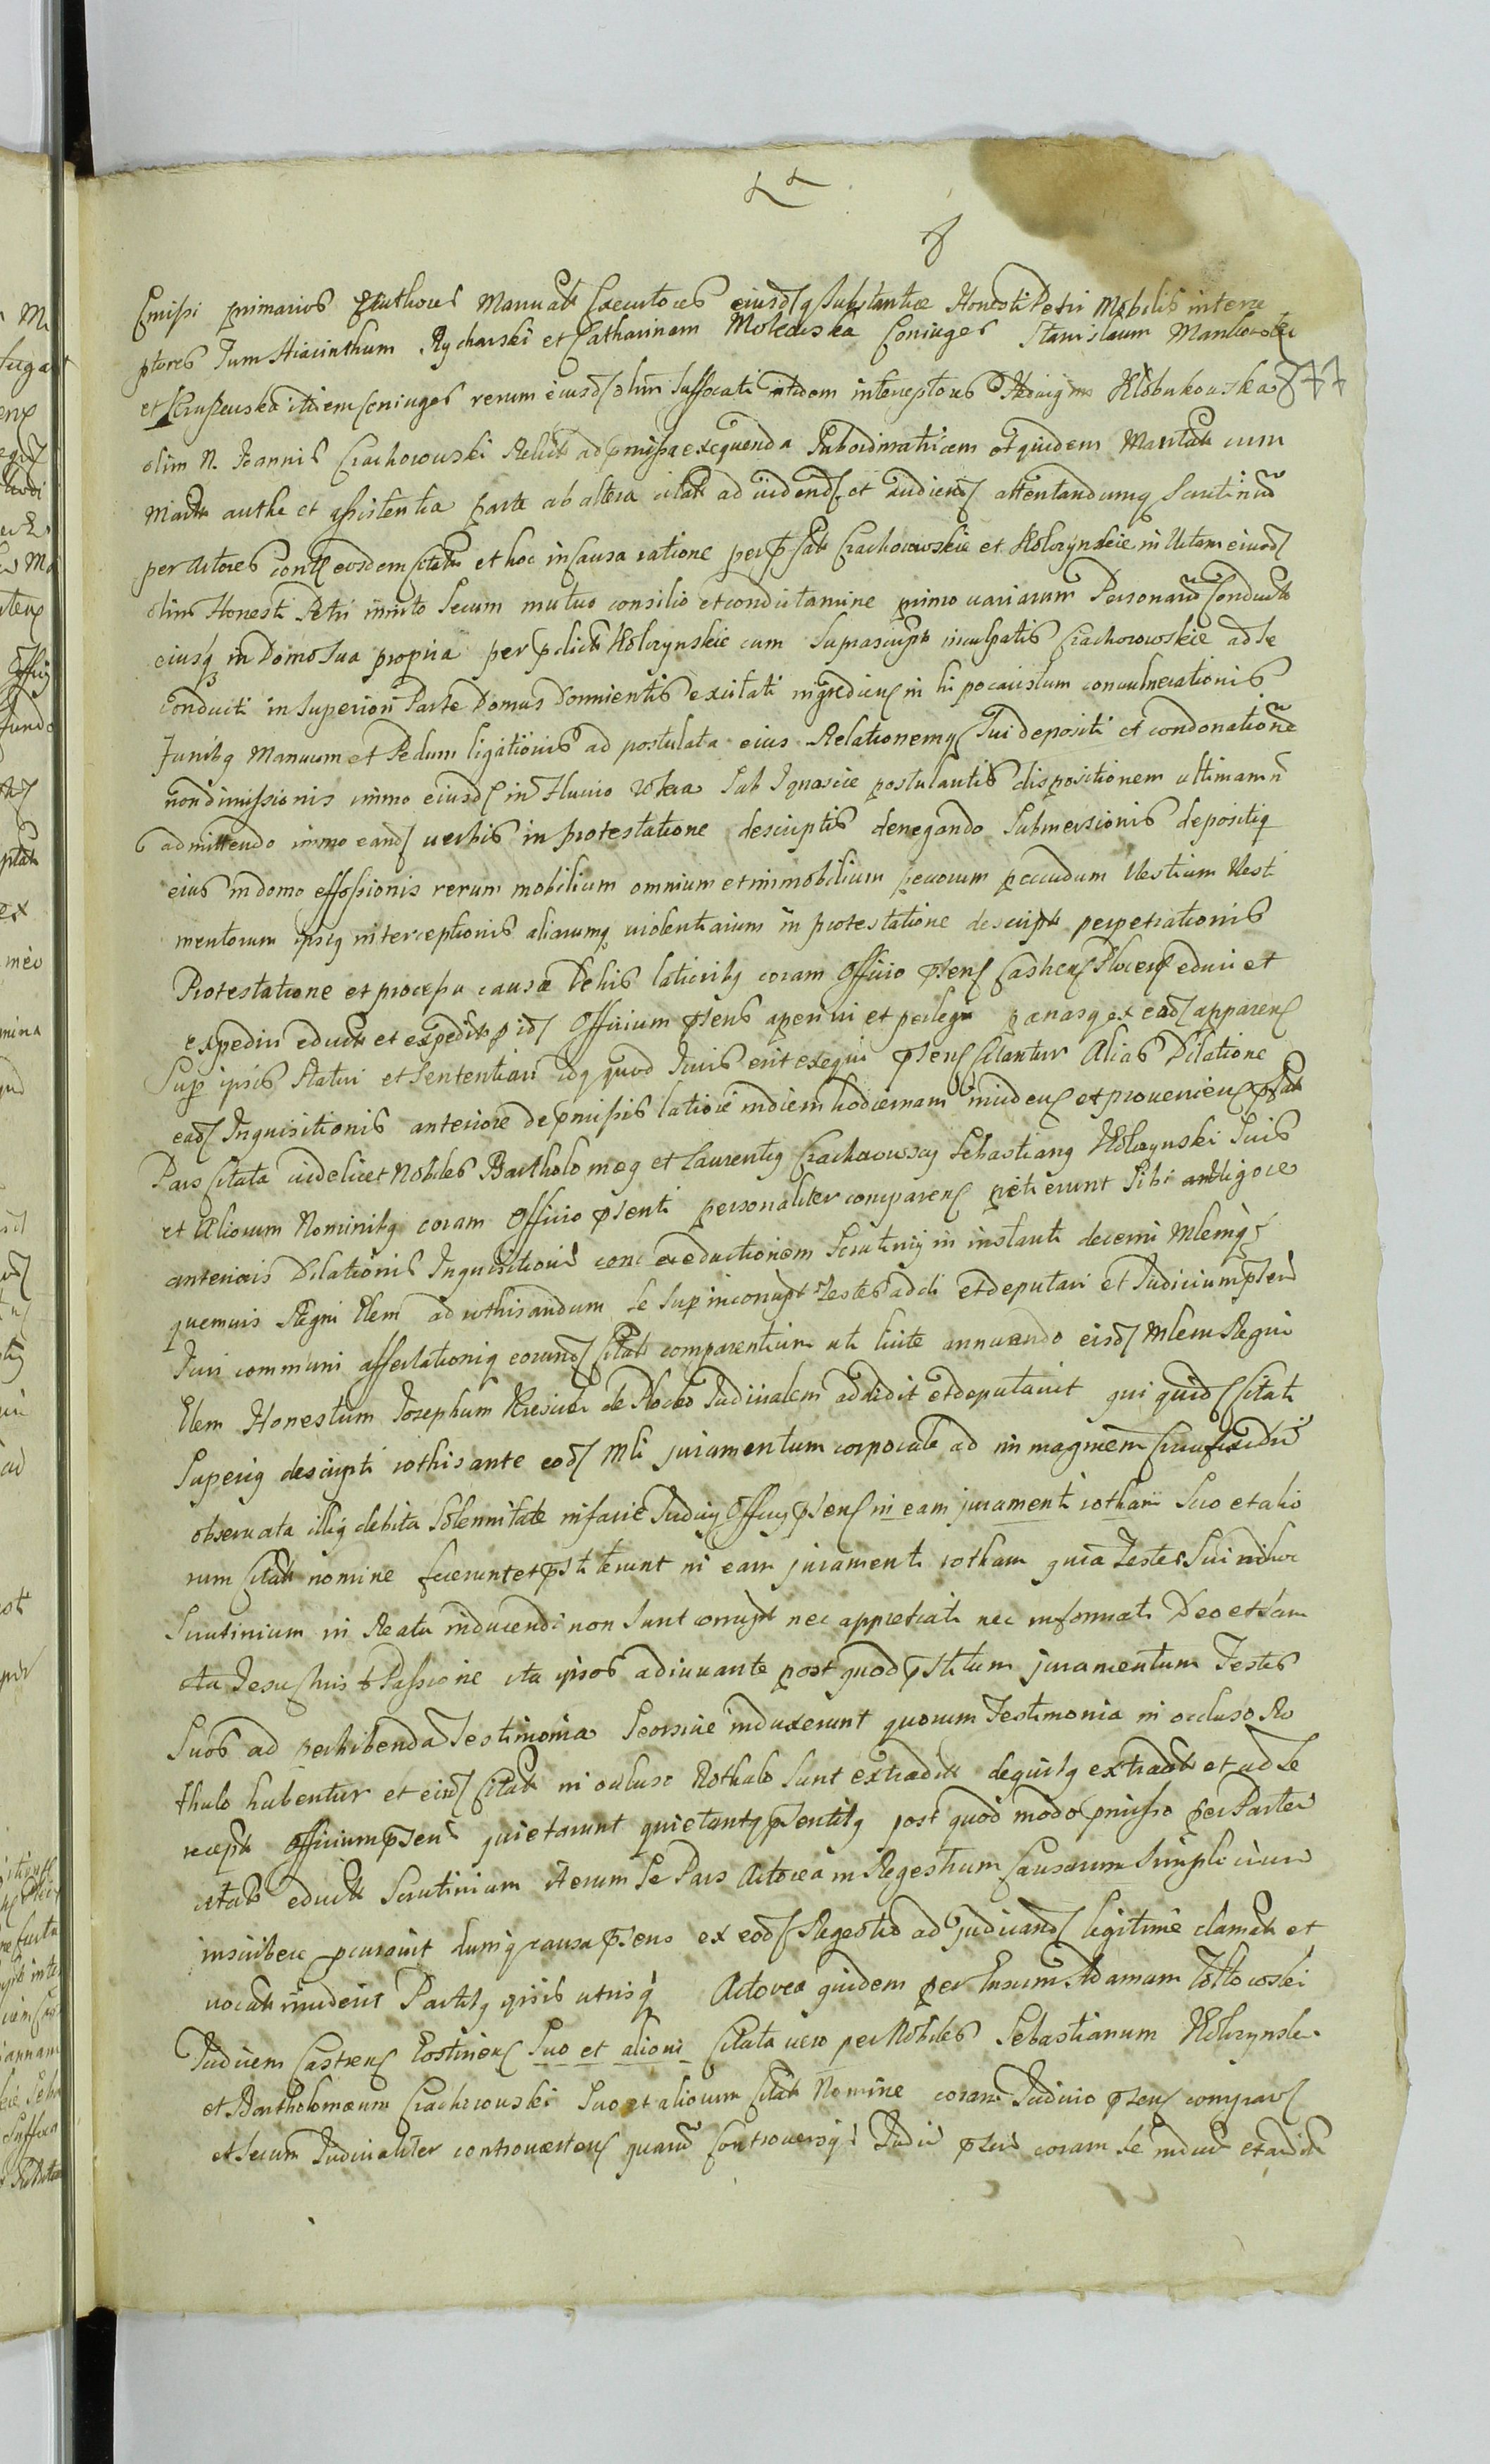 Emissi primarios Authores Manuat Executores eiusdq Substantiae Honesti Petri Mobilis interce
ptores Tum Hiacinthum Rycharski et Catharinam Molewska Coniuges Stanislaum Mankowski
et Kruszewska itidem Coniuges rerum eiusd olim Suffocati itidem interceptores Hedvigim Kłobukowska 877
olim N. Joannis Crachowski Relict ad pmissa exequenda Subordinatricem et quidem Maritat cum
Marit authe et assistentia parte ab altera citat ad videnđ et audienđ attentandumq Scrutiniū
per Actores contra eosdem Citatos et hoc in Causa ratione per pfat Crachowskie et Kobrzynskie in Vitam eiusd
olim Honesti Petri inito Secum mutuo consilio et condictamine primo variarum Personarū Conduct
eiusq in Domo Sua propria per pdict Kobrzynskie cum Suprascript inculpatis Crachowskie ad se
conducti in Superiori Parte Domus Dormientis excitati ingredien in hipocaustum convulnerationis
Funibq Manuum et Pedum ligationis ad postulata eius Relationemq Sui depositi et condonatione
non dimissionis immo eiusd in Fluvio Wkra Sub Ignascie postulantis dispositionem ultimam n̄
admittendo immo eand verbis in protestatione descriptis denegando Submersionis depositiq
eius in domo effossionis rerum mobilium omnium et immobilium pecorum pecudum Vestium Vest
mentorum ipsiq interceptionis aliarumq violentiarum in protestatione descript perpetrationis
Protestatione et processu causae de his latioribq coram Officio psen Castren Plocen educi et
expediri educt et expedit p id Officium psens aperiri et perlegi paenasq ex ead apparen
Sup ipsis Statui et Sententiari idq quod Iuris erit exequi psen Citantur Alias Dilatione
ead Inquisitionis anteriore de pmissis latiore in diem hodiernam inciden et provenien pfat
Pars Citata videlicet Nobiles Bartholomeq et Laurentiq Crachowscy Sebastianq Kobrzynski Suis
et Aliorum Nominibq coram Officio psenti personaliter comparen petierunt Sibi vigore
anterioris Dilationis Inquisitionis eductionem Scrutinij in instanti decerni Mlemq
quemvis Regni Elem ad rothisandum se Sup incorrupt Testes addi et deputari et Iudicium psens
Iuri communi affectationiq eorund Citat comparentium uti licite annuendo eisd Mlem Regni
Elem Honestum Josephum de Plocko Iudicialem addidit et deputavit qui quid Citati
Superiq descripti rothisante eod Mli juramentum corporale ad imaginem Crucifixi Dni
observata illiq debita Solennitate in facie Iudicij Officij psen in eam juramenti rotham Suo et alio
rum Citat nomine fecerunt et pstiterunt in eam juramenti rotham quia Testes Sui in hoc
Scrutinium in Reatu inducendi non Sunt corrupt nec appretiati nec informati Deo et San
cta Jesu Christi Passione ita ipsos adiuvante post quod pstitum juramentum Testes
Suos ad perhibenda Testimonia Seorsive induxerunt quorum Testimonia in occluso Ro
thulo habentur et eisd Citat in occluso Rothulo Sunt extradit de quibq extradit et ad Se
recept Officium psens quietarunt quietantq psentibq post quod modo pmisso per Partes
citat educt Scrutinium iterum Se Pars Actorea in Regestrum Causarum Simplicium
inscribere pcuravit dumq causa psens ex eod Regestro ad judicand legitime clamat et
vocat incideret Partibq ipsis utrisq Actorea quidem per Gnsum Adamam Żółtowski
Iudicem Castren Gostinen Suo et alioru Citata vero per Nobiles Sebastianum Kobrzynski
et Bartholomaeum Crachowski Suo et aliorum Citat Nomine coram Iudicio psen comparen
et Secum Iudicialiter controverten quarū Controversijs Iudic psens coram se induct et audit